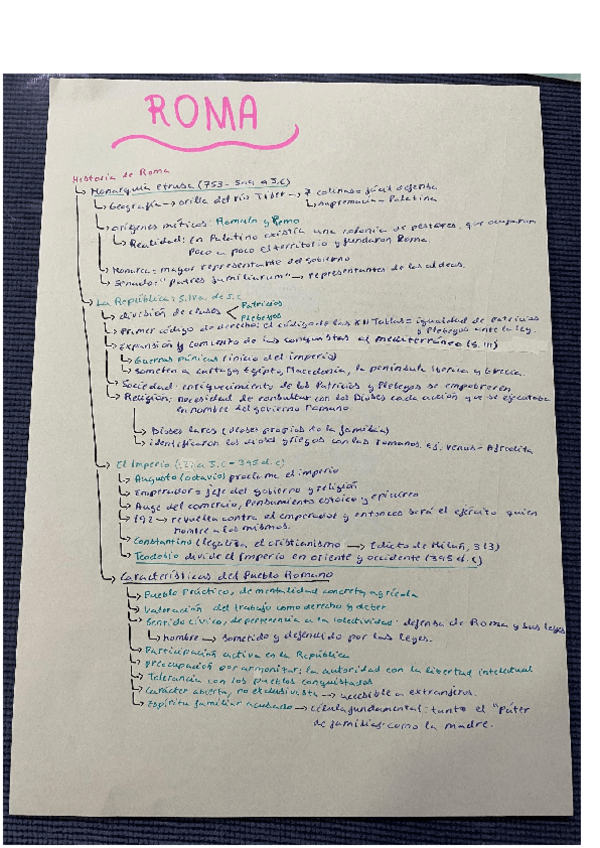 ROMA
Historia de Roma
Monarquía etrusa (753 - 509 a J.C)
Geografía → orilla del río Tíber → 7 colinas = fácil defensa
supremacía = Palatina
orígenes míticos: Rómulo y Remo
Realidad: en Palatino existía una colonia de pastores, que ocuparon
poco a poco el territorio y fundaron Roma.
Monarca: mayor representante del gobierno
Senado: "patres familiarum" → representantes de las aldeas.
La República: S.IV a. de J.C
división de clases Patricios
Plebeyos
Primer código de derecho: el código de las XII Tablas = igualdad de patricios
y Plebeyos ante la ley.
Expansión y comienzo de las conquistas al mediterráneo (S. III)
Guerras púnicas (inicio del imperio)
someten a Cartago, Egipto, Macedonia, la península Iberica y Grecia.
Sociedad: enriquecimiento de los Patricios y Plebeyos se empobrecen
Religión: necesidad de consultar con los Dioses cada acción que se ejecutaba
en nombre del gobierno romano
Dioses lares (dioses propios de la familia)
identificaron los dioses griegos con los romanos. Ej. Venus - Afrodita
El Imperio ( a J.C - 395 d. C)
Augusto (octavio) proclama el imperio
Emperador = jefe del gobierno y religión
Auge del comercio, Pensamiento estoico y epicúreo
192 → revuelta contra el emperador y entonces será el ejército quien
nombre a los mismos.
Constantino legaliza el cristianismo → Edicto de Milán, 313)
Teodosio divide el Imperio en oriente y occidente (395 d. C)
Características del Pueblo Romano
Pueblo práctico, de mentalidad concreta, agrícola
Valoración del trabajo como derecho y deber
Sentido cívico, de pertenencia a la colectividad: defensa de Roma y sus leyes
hombre → sometido y defendido por las leyes.
Participación activa en la República
preocupación por armonizar: la autoridad con la libertad intelectual
Tolerancia con los pueblos conquistados
Carácter abierto, no exclusivista → accesible a extranjeros.
Espíritu familiar acusado → célula fundamental: tanto el "Páter
de familias" como la madre.